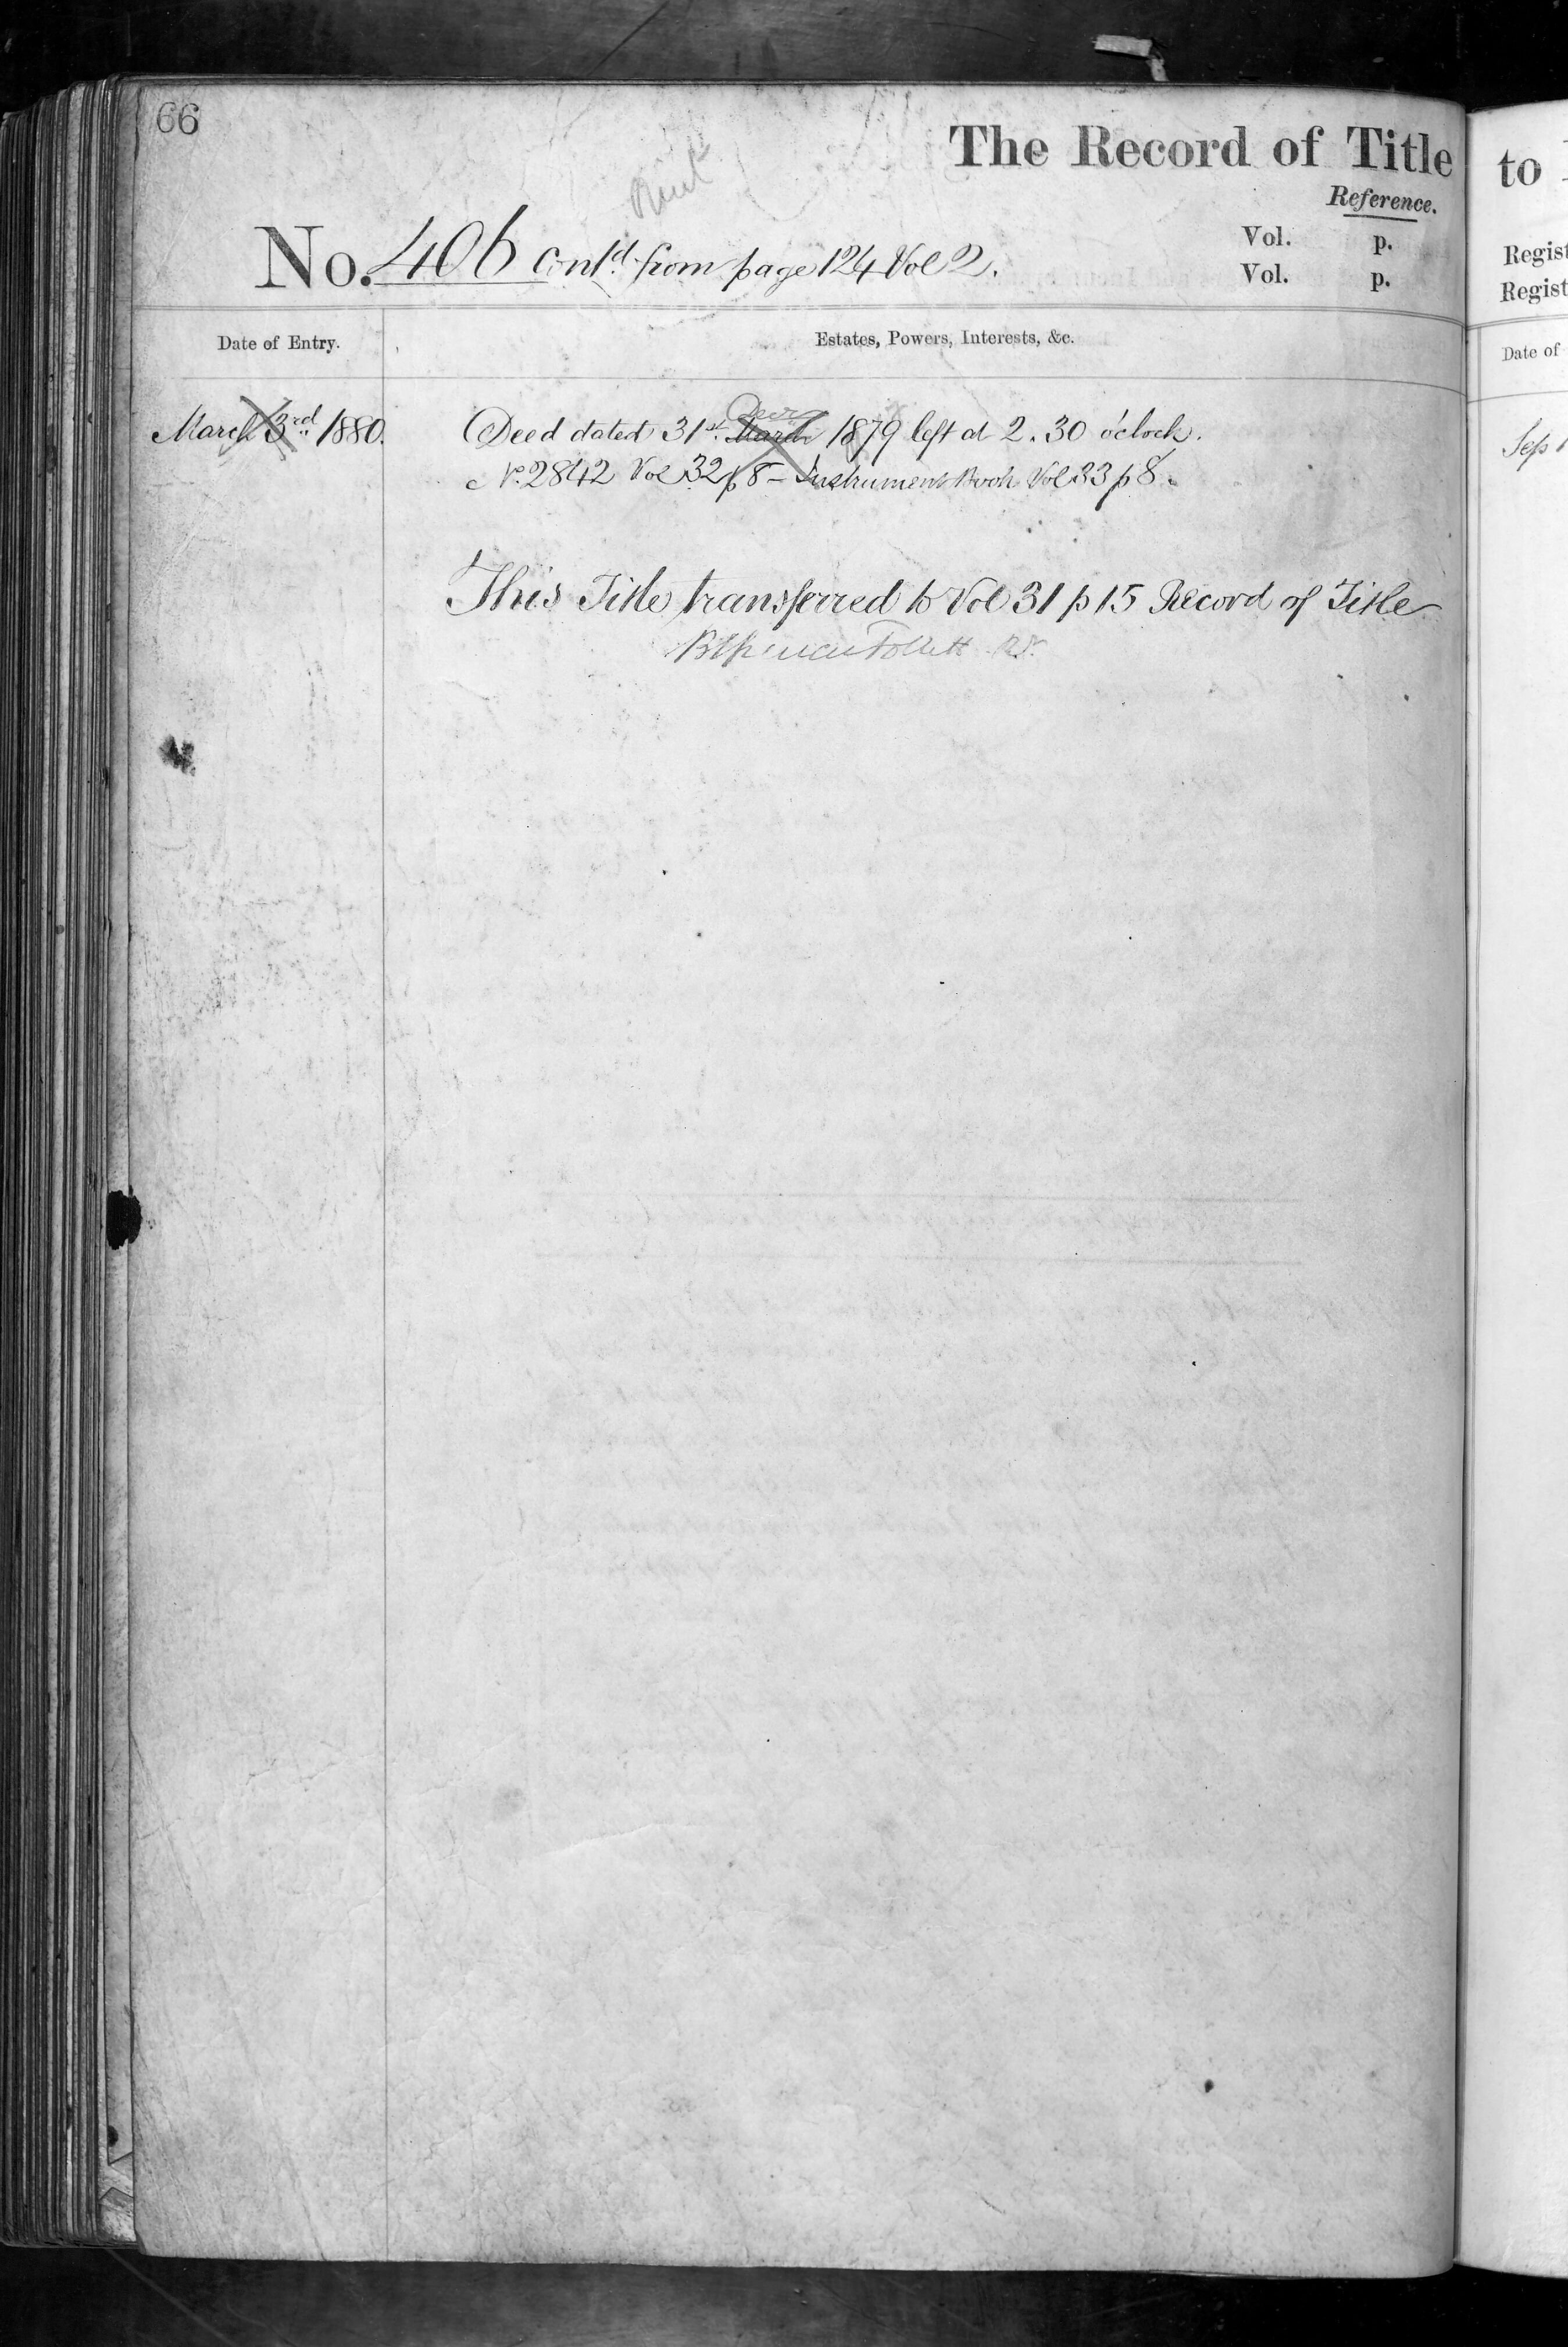 66
The Record of Title
Reference.
No. 406 contd. from page 124 Vol 2.
Vol. p.
Vol. p.
Date of Entry.
Estates, Powers, Interests, &c.
March 3rd 1880.
Decr
Deed dated 31st March 1879 left at 2.30 o'clock.
No. 2842 Vol 32 p 8 - Instrument Book Vol 33 p 8.
This Title transferred to Vol 31 p 15 Record of Title
Follett
to
Regist
Regist
Date of
Sep 1